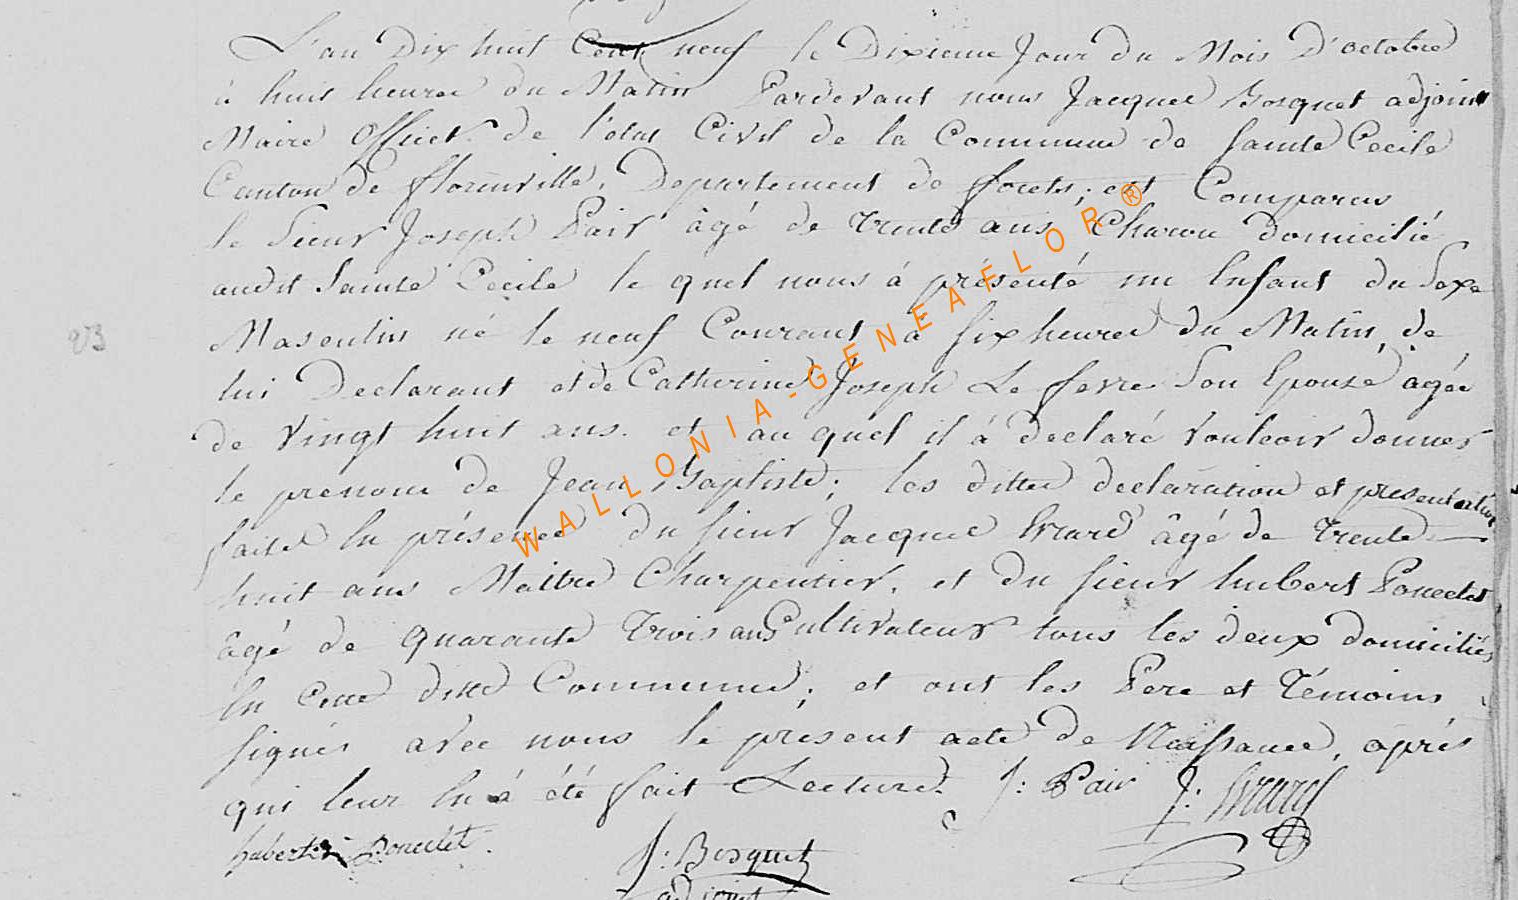 L'an Dix huit Cent neuf le Dixieme Jour du Mois D'octobre
à huit heures du Matin Pardevant nous Jacques Bosquet adjoint
Maire officier de l'etat Civil de la Commune de Sainte Cecile
Canton de florenville, Departement de forets; est Comparus
le Sieur Joseph Pair âgé de trente ans, Charon domicilié
audit Sainte Cecile le quel nous à présenté un Enfant du Sexe
Masculin né le neuf Courant à six heures du Matin, de
lui Declarant et de Catherine Joseph Le fevre Son Epouse âgée
de Vingt huit ans. et au quel il à declaré vouloir donner
le prenom de Jean Baptiste; les dittes declaration et presentation
faites En présence du sieur Jacques Evrard âgé de Trente
huit ans Maitre Charpentier, et du sieur hubert Poncelet
âgé de quarante trois ans Cultivateur tous les deux domiciliés
En Cette ditte Commune; et ont les Pere et Témoins
signés avec nous le présent acte de Naissance, après
qui leur En à été fait Lecture. J: Pair J: Evrard
hubert Poncelet
J: Bosquet
adjoint
93
WALLONIA-GENEAFLOR®